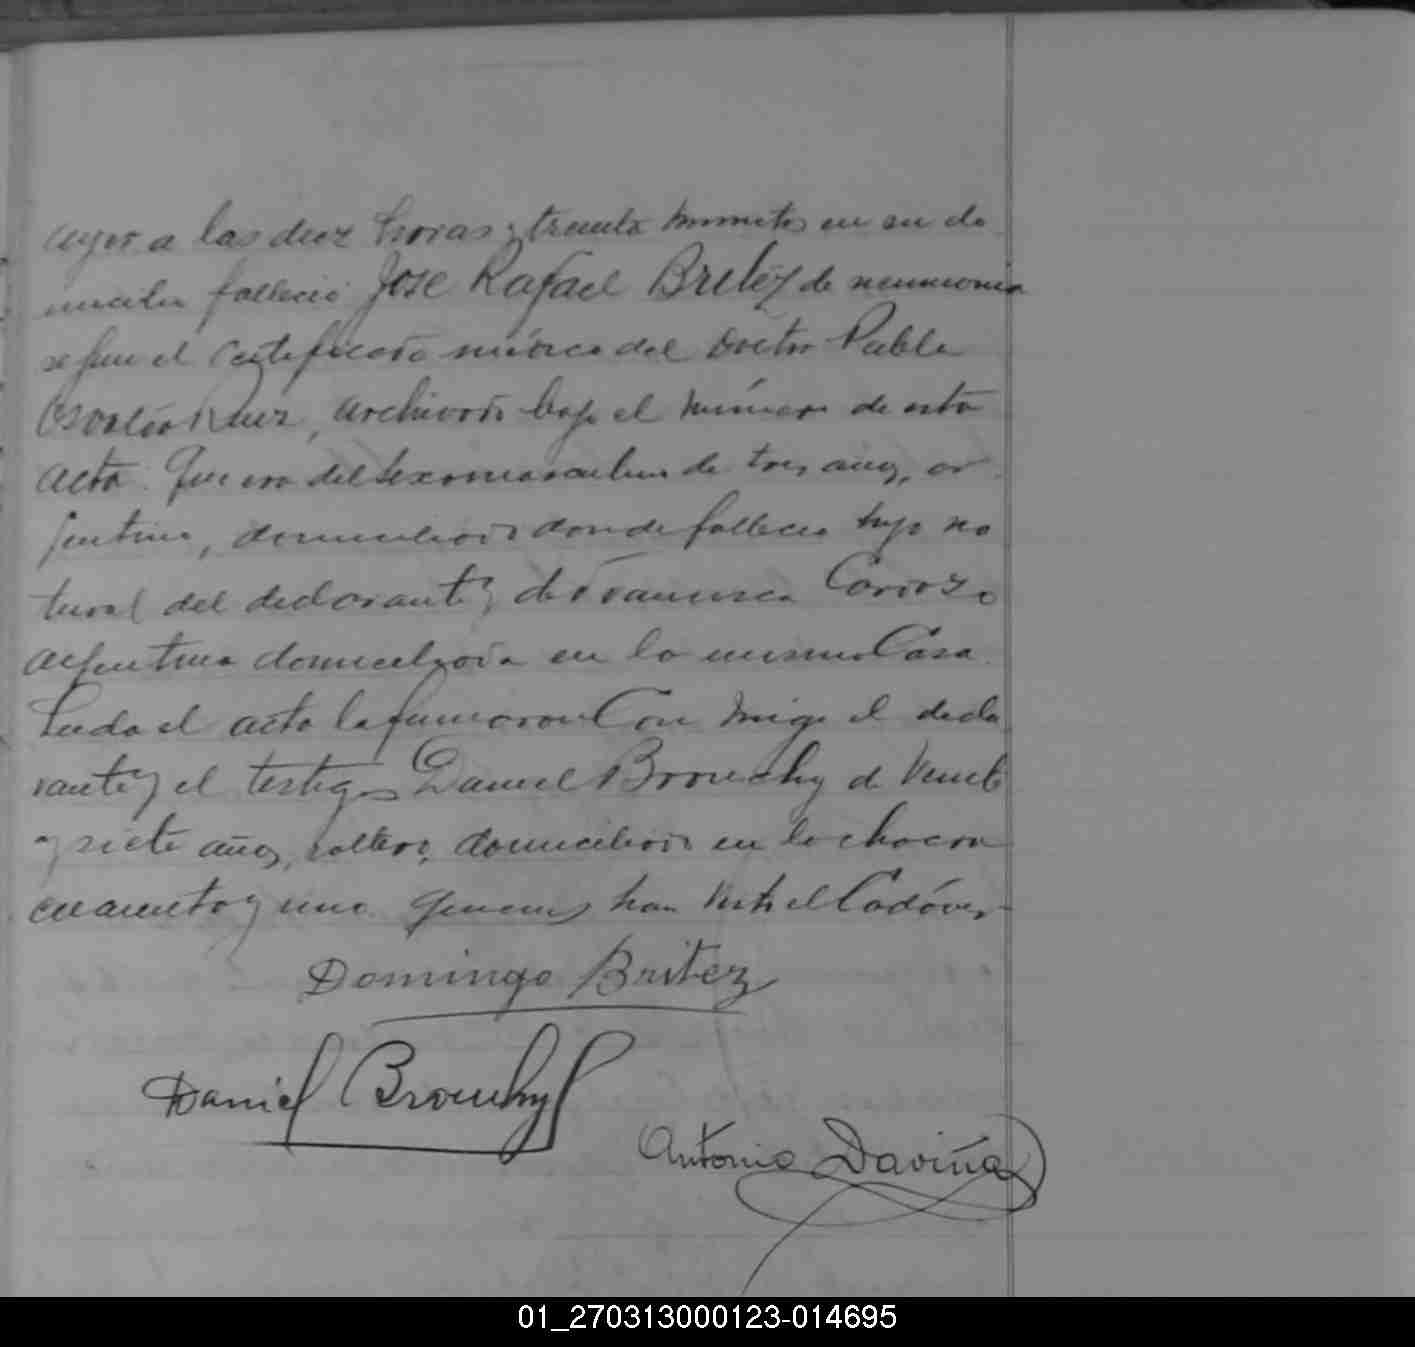 ayer a las diez horas y treinta minutos en su do
micilio falleció José Rafael Britez de neumonia
segun el certificado médico del Doctor Pablo
Osvaldo Ruiz, archivado bajo el número de esta
acta. Que era del sexo masculino de tres años, ar
jentino, domiciliado donde falleció hijo na
tural del declarante y de Francisca
argentina domiciliada en la misma Casa.
Leida el acta la firmaron Con migo el decla
rante y el testigo Daniel Brouchy de veinti
y siete años, soltero, domiciliado en la chacra
cuarenta y uno quienes han visto el Cadáver
Domingo Britez
Daniel Brouchy
Antonio Daviña
01_270313000123-014695